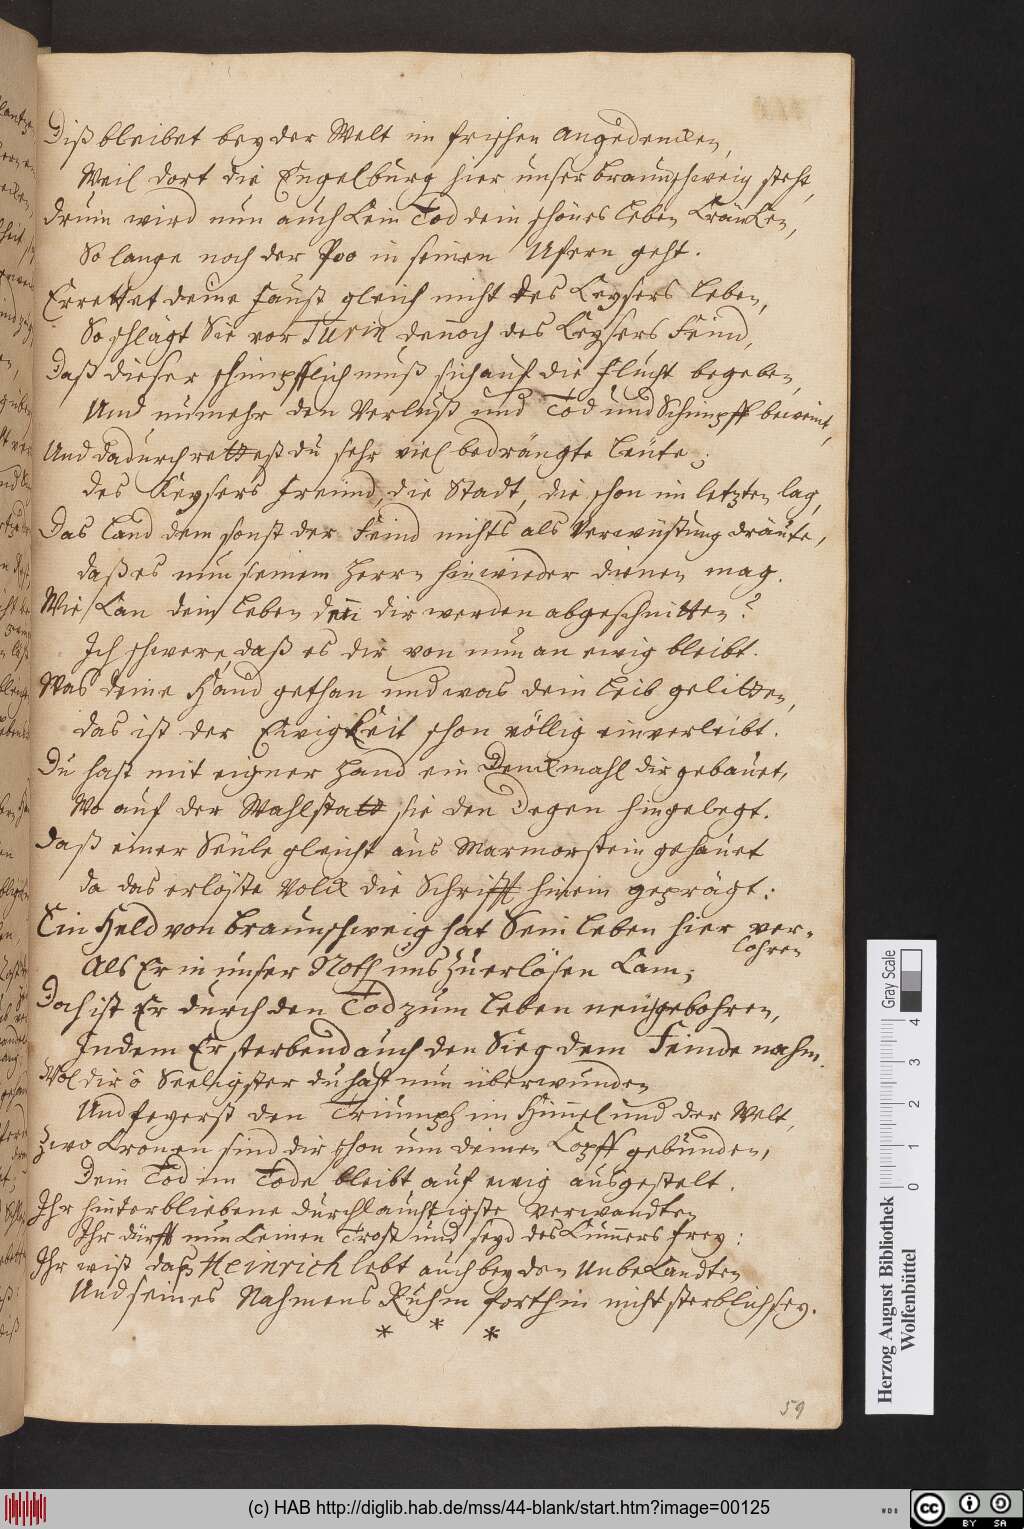 Diß bleibet bey der Welt im frischen Angedencken,
Weil dort die Engelburg hier unser Braunschweig steht,
Drum wird nun auch kein Tod dein schönes Leben kräncken,
So lange noch der Poo in seinen Ufern geht.
Errettet deine Faust gleich nicht des Keysers Leben,
So schlägt Sie vor Turin dennoch des Keysers Feind,
Daß dieser schimpfflich muß sich auf die Flucht begeben,
Und nunmehr den Verlust und Tod und Schimpff beweint,
Und dadurch rettest du sehr viel bedrängte Leute;
Des Keysers Freund, die Stadt, die schon im letzten lag,
Das Land dem sonst der Feind nichts als Verwüstung dräute,
daß es nun seinem Herrn hinwieder dienen mag.
Wie kan dein Leben den dir werden abgeschnitten?
Ich schwere, daß es dir von nun an ewig bleibt.
Was deine Hand gethan und was dein Leib gelitten,
das ist der Ewigkeit schon völlig einverleibt.
Du hast mit eigner Hand ein Denckmahl dir gebauet,
Wo auf der Wahlstatt sie den Degen hingelegt.
Daß einer Seule gleicht aus Marmorstein gehauet
da das erlößte Volck die Schrifft hinein geprägt:
Ein Held von Braunschweig hat Sein Leben hier ver-
lohren
Als Er in unser Noth uns zu erlösen kam;
Doch ist Er durch den Tod zum Leben neu gebohren,
Indem Er sterbend auch den Sieg dem Feinde nahm.
Wol dir ô Seeligster du hast nun überwunden
Und feyerst den Triumph im Himel und der Welt,
Zwo Cronen sind dir schon um deinen Kopff gebunden,
Dein Tod im Tode bleibt auf ewig ausgestelt.
Ihr hinterbliebene durchlauchtigste Verwandten
Ihr dürfft nun keinen Trost und seyd des Kumers frey:
Ihr wist daß Heinrich lebt auch bey den Unbekandten
Und seines Nahmens Ruhm forthin nicht sterblich sey.
* * *
59
Gray Scale
0 1 2 3 4
Herzog August Bibliothek
Wolfenbüttel
(c) HAB http://diglib.hab.de/mss/44-blank/start.htm?image=00125
WDB
cc BY SA